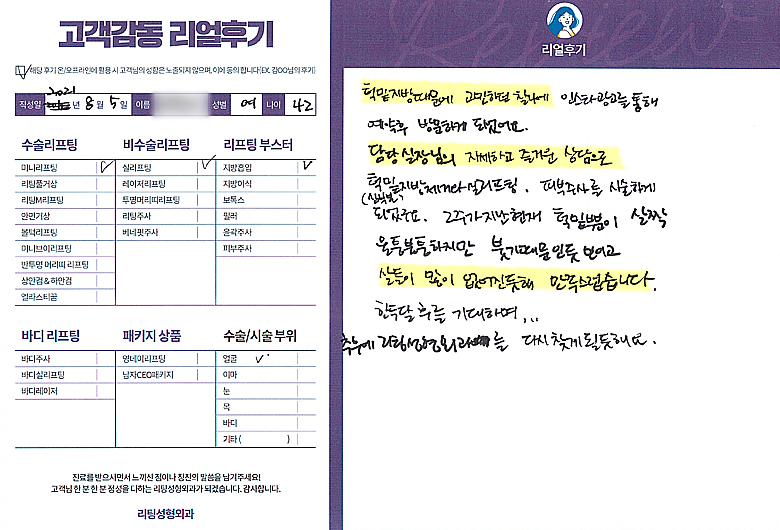 고객감동 리얼후기
해당 후기 온/오프라인에 활용 시 고객님의 성함은 노출되지 않으며, 이에 동의 합니다(EX. 김OO님의 후기)
작성일 2021 년 8 월 5 일 이름 성별 여 나이 42
수술리프팅 비수술리프팅 리프팅 부스터
미니리프팅 실리프팅 지방흡입
리팅풀거상 레이저리프팅 지방이식
리팅M리프팅 투명머리띠리프팅 보톡스
안면거상 리팅주사 필러
볼턱리프팅 베네핏주사 윤곽주사
미니브이리프팅 피부주사
반투명 머리띠 리프팅
상안검 & 하안검
엘라스티꿈
바디 리프팅 패키지 상품 수술/시술 부위
바디주사 영네이리프팅 얼굴
바디실리프팅 남자CEO패키지 이마
바디레이저 눈
목
바디
기타 ( )
진료를 받으시면서 느끼신 점이나 칭찬의 말씀을 남겨주세요!
고객님 한 분 한 분 정성을 다하는 리팅성형외과가 되겠습니다. 감사합니다.
리팅성형외과
Review
리얼후기
턱밑지방때문에 고민하던 찰나에 인스타광고를 통해
예약후 방문하게 되었어요.
담당 실장님의 자세하고 즐거운 상담으로
턱밑지방제거와 실리프팅, 피부주사를 시술하게
되었구요. 2주가 지난 현재 턱밑부분이 살짝
울퉁불퉁하지만 붓기때문인듯 보이고
살들이 많이 없어진듯해 만족스럽습니다.
한두달 후를 기대하며,..
추후에 리팅성형외과를 다시 찾게될듯해요.